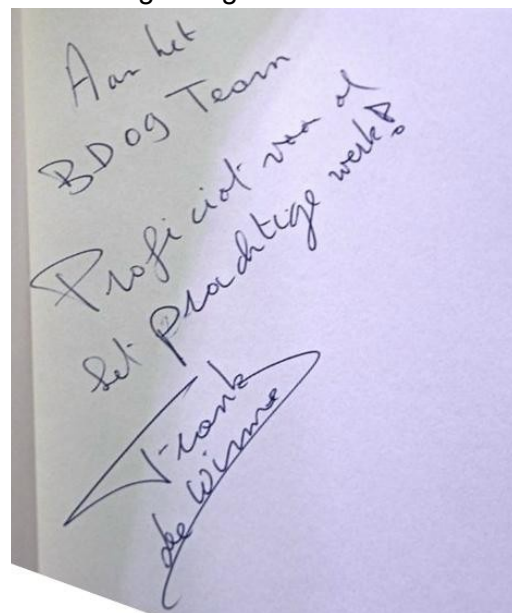 Aan het
BD09 Team
Proficiat voor al
het prachtige werk!
Frank
de Winne